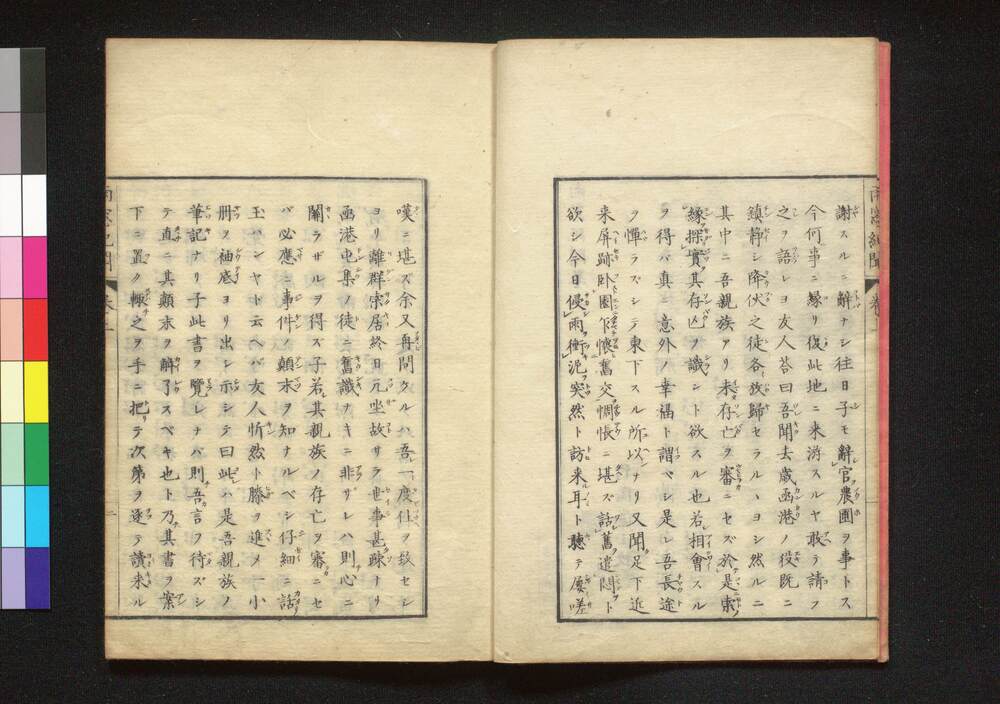 謝スルニ辭ナシ往日子モ辭官農圃ヲ事トス
今何事ニ縁リ復此地ニ来游スルヤ敢テ請フ
之ヲ語レヨ友人答曰吾聞去歳函港ノ役既ニ
鎮静シ降伏之徒各放歸セラルヽヨシ然ルニ
其中ニ吾親族アリ未存亡ヲ審ニセズ於是索
縁探實其存凶ノ識ント欲スル也若相會スル
ヲ得バ真ニ意外ノ幸福ト謂ベシ是レ吾長途
ヲ憚ラズシテ東下スル所以ナリ又聞足下近
来屏跡臥園下懐舊交惆悵ニ堪ズ話舊遣悶ト
欲シ今日侵雨衝泥突然ト訪来耳ト聴テ屡嗟
嘆ニ堪ズ余又再問タルハ吾一度仕ヲ致セシ
ヨリ離群索居終日兀坐故サラ世事甚疎ナリ
函港屯集ノ徒ニ舊識ナキニ非ザレハ則心ニ
關ラザルヲ得ズ子若其親族ノ存亡ヲ審ニセ
バ必應ニ事件ノ顛末ヲ知ナルベシ仔細ニ話
玉ハンヤト云ヘバ友人忻然ト膝ヲ進メ一小
冊ヲ袖底ヨリ出シ示シテ曰此ハ是吾親族ノ
筆記ナリ子此書ヲ覽レナバ則吾言ヲ待ズシ
テ直ニ其顛末ヲ解了スベキ也ト乃其書ヲ案
下ニ置ク輙之ヲ手ニ把リテ次第ヲ逐テ讀来ル